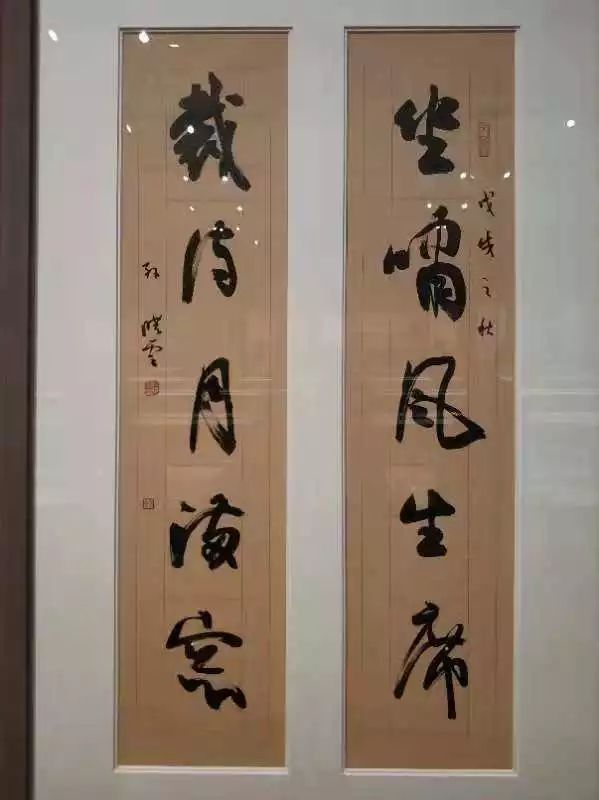 戊戌之秋
坐嘯风生席
裁诗月满窗
孙晓雲